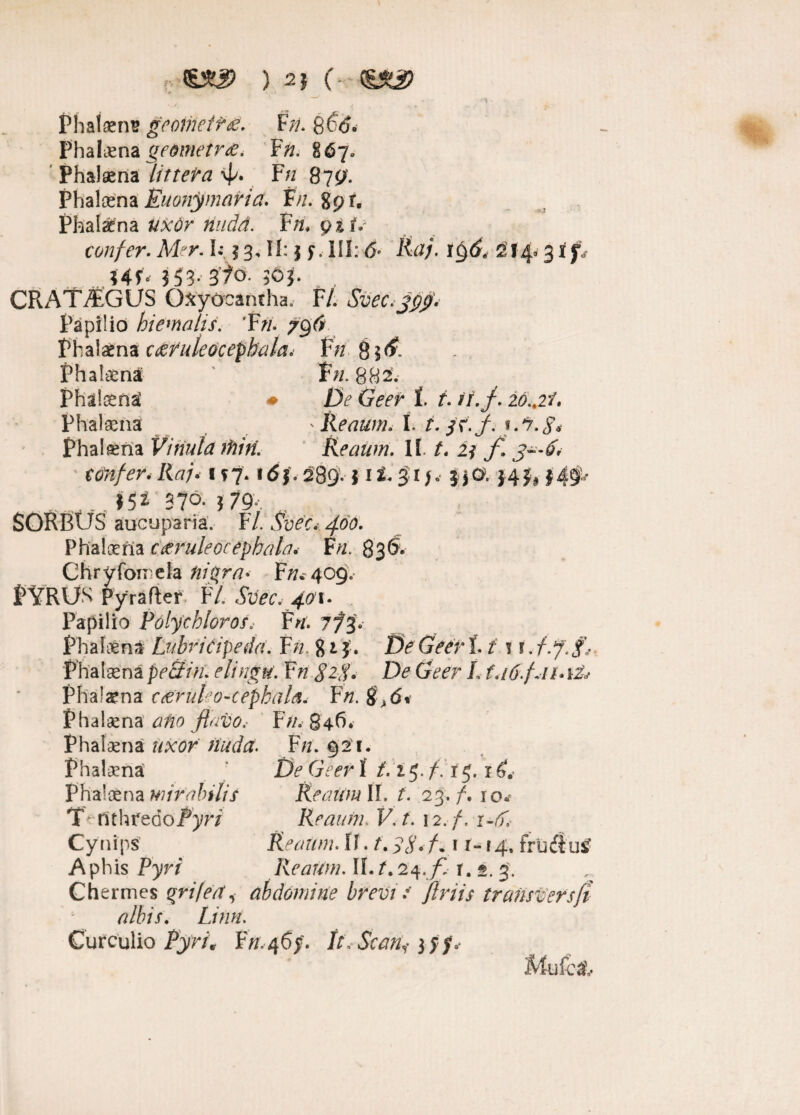 ) 23 (
Phalæna geometræ. Fn. 866.
Phalæna geometræ. Fn. 867.
Phalæna littera ψ. Fn 879.
Phalæna Euonymaria. Fn. 891.
Phalæna uxor nuda. Fn. 921.
confer. Mer. I: 33. II: 35. III: 6. Raj. 196. 214. 315.
345. 353. 370. 303.
CRATÆGUS Oxyocantha. Fl. Svec. 399.
Papilio hiemalis. Fn. 796
Phalæna cæruleocephala. Fn 836.
Phalæna Fn. 882.
Phalæna De Geer I. t. 11. f. 20. 21.
Phalæna Reaum. I. t. 31. f. 1. 7. 8.
Phalæna Vinula min. Reaum. II. t. 23 f. 3--6.
confer. Raj. 157. 163. 289. 312. 315. 330. 343, 349.
352 370. 379.
SORBUS aucuparia. Fl. Svec. 400.
Phalæna cæruleocephala. Fn. 836.
Chrysomela nigra. Fn. 409.
PYRUS Pyraster Fl. Svec. 401.
Papilio Polychloros. Fn. 773.
Phalæna Lubricipeda. Fn. 823. De Geer I. t 11. f. 7. 8.
Phalæna pectin. elingu. Fn 828. De Geer I. t. 16. f. 11. 12.
Phalæna cæruleo-cephala. Fn. 836.
Phalæna ano flavo. Fn. 846.
Phalæna uxor nuda. Fn. 921.
Phalæna De Geer I t. 15. f. 15. 16.
Phalæna mirabilis Reaum II. t. 23. f. 10.
Tenthredo Pyri Reaum. V. t. 12. f. 1-6.
Cynips Reaum. II. t. 38. f. 11-14, fructus
Aphis Pyri Reaum. II. t. 24. f. 1. 2. 3.
Chermes grisea, abdomine brevi: striis transversis
albis. Linn.
Curculio Pyri. Fn. 465. It. Scan. 355.
Musca.